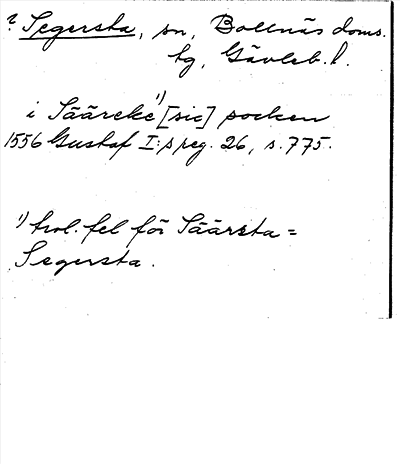 ? Segersta, sn, Bollnäs doms.
tg, Gävleb. l.
i Sääreke¹⁾ [sic] socken
1556 Gustaf I:s reg. 26, s. 775.
¹⁾ trol. fel för Säärsta =
Segersta.